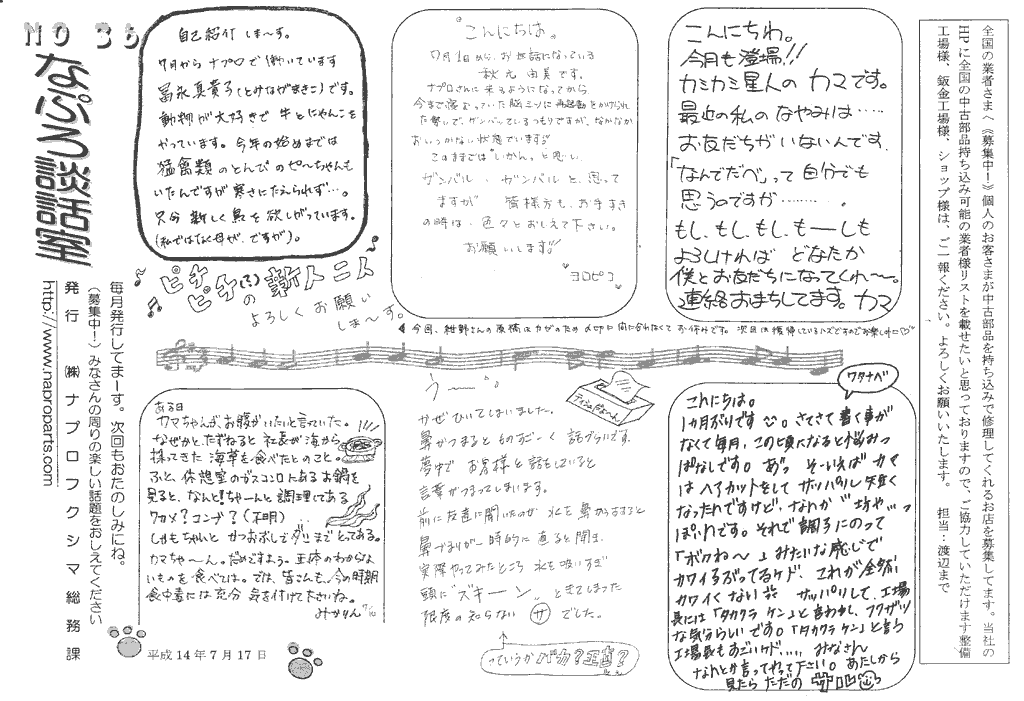 NO 36
なぷろ談話室
自己紹介 しま〜す。
7月から ナプロで 働いています
冨永真貴子(とみながまきこ)です。
動物が大好きで 牛とにゃんこを
やっています。今年の始めまでは
猛禽類のとんびの ぴーちゃんも
いたんですが 寒さにたえられず…。
只今 新しく鳥を 欲しがっています。
(私ではなく母が、ですが)。
こんにちは。
7月1日から、お世話になっている
秋元 由美です。
ナプロさんに来るようになってから、
今まで落むっていた脳ミソに再起動をかけられ
た勢いで、ガンバっているつもりですが、なかなか
おいつかない状態でいます!!
このままでは"いかん"と思い
ガンバル、ガンバルと、思って
ますが 皆様方も、お手すき
の時は、色々とおしえて下さい。
お願いします!!
ヨロピコ
こんにちわ。
今月も登場!!
カミカミ星人の カマです。
最近の私のなやみは……
お友だちがいないんです.
「なんでだべ」って 自分でも
思うのですが………。
もし、もし、もし、も――しも
よろしければ どなたか
僕とお友だちになってくれ〜〜。
連絡おまちしてます。カマ
全国の業者さまへ《募集中!》個人のお客さまが中古部品を持ち込みで修理してくれるお店を募集してます。当社の
HPに全国の中古部品持ち込み可能の業者様リストを載せたいと思っておりますので、ご協力していただけます整備
工場様、鈑金工場様、ショップ様は、ご一報ください。よろしくお願いいたします。 担当:渡辺まで
ピチピチ(?)の新人トニト
よろしくお願い
しま〜す。
今回、紺野さんの原稿はカゼのため 〆切日に間に合わなくて お休みです。次回は獲得しているハズですのでお楽しみに♡
毎月発行してまーす。次回もおたのしみにね。
(募集中!)みなさんの周りの楽しい話題をおしえてください
発行 ㈱ナプロフクシマ総務課
http://www.naproparts.com
ある日
カマちゃんが、お腹がいたいと言っていた。
なぜかとたずねると 社長が海から、
採ってきた 海草を食べたとのこと。
ふと、休憩室のガスコンロにあるお鍋を
見ると、なんと!ちゃーんと調理してある
ワカメ?コンブ?(不明)
しかもちゃんと かつおぶしでダシまでとってある。
カマちゃ〜ん。だめですよう。正体のわからな
いものを食べては。では、皆さんも、今の時期
食中毒には充分 気を付けて下さいね。
みかりん
平成14年7月17日
うー
かぜ ひいてしまいました。
鼻がつまると ものすごーく 話づらいです
夢中で お客様と話をしていると
言葉がつまってしまいます。
前に友達に聞いたのが 水を鼻からすすると
鼻づまりが一時的に直ると聞き
実際やってみたところ 水を吸いすぎ
頭に"ズキーン"ときてしまった
限度の知らない サ でした。
っていうか バカ?正直?
ティッシュ
ワタナベ
こんにちは。
1カ月ぶりです。さてさて書く事が
なくて毎月、この頃になると悩みっ
ぱなしです。あっ そーいえば カマ
はヘアカットをして サッパリし 短く
なったんですけど、なんか"坊や"っ
ぽいんです。それで調子にのって
「ボクね〜」みたいな感じで
カワイ子ぶってるケド、これが全然
カワイくない サッパリして、工場
長には「タカクラ ケン」と言われ、フクザツ
な気分らしいです。「タカクラ ケン」と言う
工場長もすごいケド.... みなさん
なんとか言ってやって下さい。あたしから
見たら ただの サル